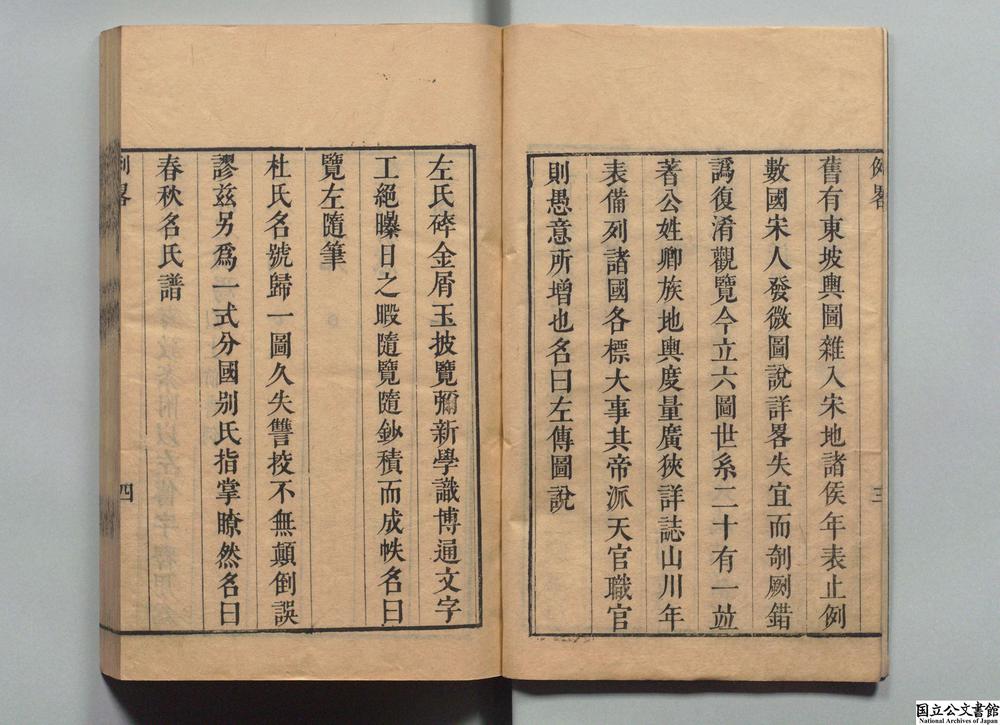 例畧
三
舊有東坡輿圖雜入宋地諸侯年表止例
數國宋人發微圖說詳畧失宜而剞劂錯
譌復淆觀覽今立六圖世系二十有一竝
著公姓卿族地輿度量廣狹詳誌山川年
表備列諸國各標大事其帝派天官職官
則愚意所增也名曰左傳圖說
左氏碎金屑玉披覽彌新學識博通文字
工絕曝日之暇隨覽隨鈔積而成帙名曰
覽左隨筆
杜氏名號歸一圖久失讐挍不無顛倒誤
謬兹另爲一式分國别氏指掌瞭然名曰
春秋名氏譜
例畧
四
国立公文書館
National Archives of Japan